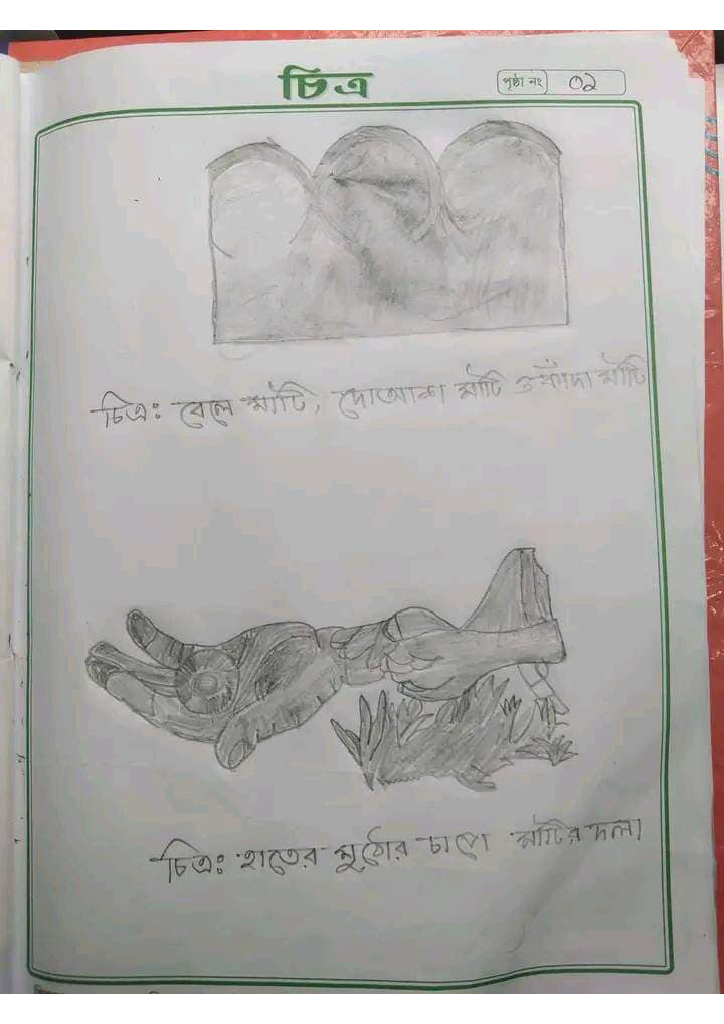 চিত্র
পৃষ্ঠা নং ০২
চিত্রঃ বেলে মাটি, দোআশ মাটি ও কাঁদা মাটি
চিত্রঃ হাতের মুঠোর চাপে মাটির দলা